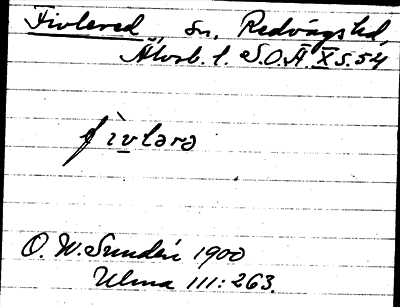 Fivlered, sn, Redvägs hd,
Älvsb. l. S.O.Ä. X s. 54
fìvlərə
O. W. Sundén 1900
Ulma 111:263.